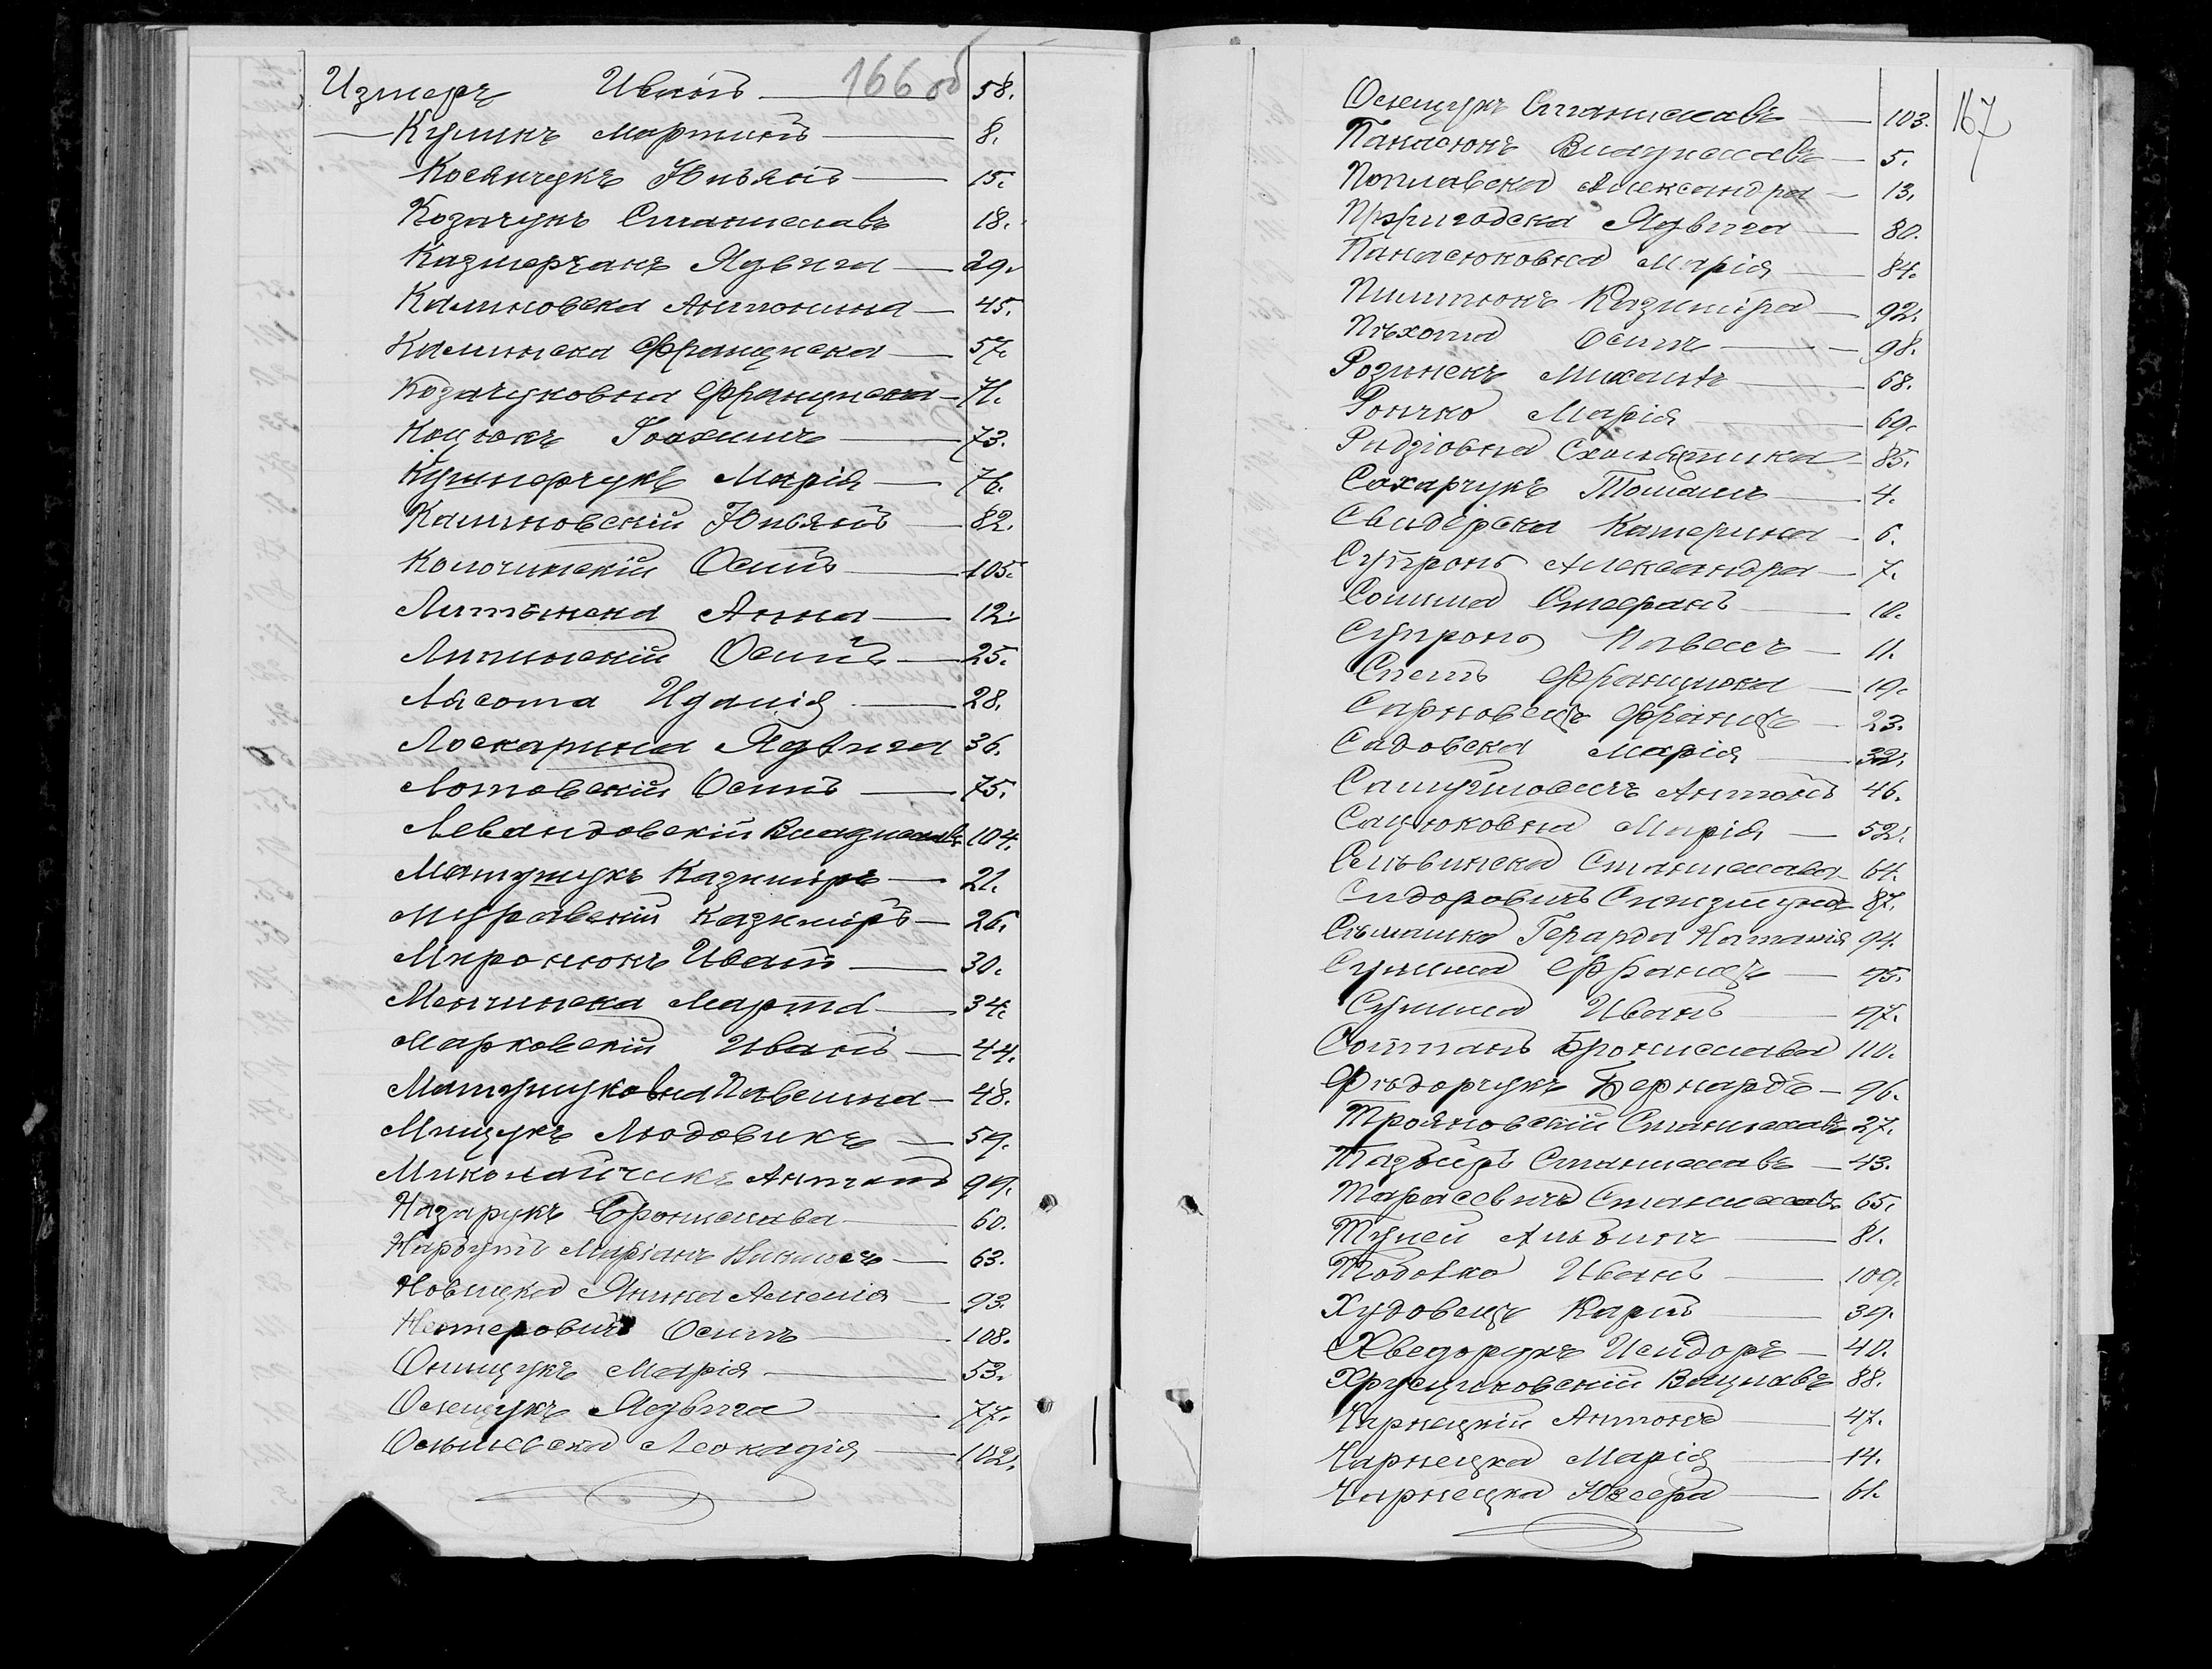 166 об
Измеръ Иванъ 58.
Куликъ Мартинъ 8.
Косянчукъ Юльянъ 15.
Козачукъ Станиславъ 18.
Казмерчакъ Ядвига 29.
Калиновска Антонина 45.
Калинска Францишка 57.
Козачуковна Францишка 71.
Коцюкъ Іоахимъ 73.
Кушнерчукъ Марія 76.
Калиновскій Юльянъ 82.
Колочинскій Осипъ 105.
Литынска Анна 12.
Липинскій Осипъ 25.
Лясота Идалія 28.
Лоскарина Ядвига 36.
Лотовскій Осипъ 75.
Левандовскій Владиславъ 104.
Матушукъ Казиміръ 21.
Муравскій Казиміръ 26.
Миронюкъ Иванъ 30.
Менчинска Марта 34.
Марковскій Иванъ 44.
Матушуковна Павелина 48.
Мищукъ Людовикъ 59.
Миколайчикъ Антонъ 99.
Назарукъ Брониславa 60.
Нарбутъ Маріанъ 63.
Новицка Янина Амелія 93.
Нестеровичъ Осипъ 108.
Онищукъ Марія 53.
Олещукъ Ядвига 77.
Ольшевска Леокадія 102.
167
Олещукъ Станиславъ 103.
Панасюкъ Владиславъ 5.
Поплавска Александра 13.
Пржигодска Ядвига 80.
Панасюковна Марія 84.
Пилипюкъ Казиміра 92.
Пѣхота Осипъ 98.
Розинекъ Михаилъ 68.
Рончко Марія 69.
Ридзіовна Схоластика 85.
Сахарчукъ Томашъ 4.
Свидерска Катерина 6.
Супронъ Александра 7.
Солима Стефанъ 10.
Супронъ Павелъ 11.
Слепъ Францишка 19.
Сарновецъ Францъ 23.
Садовска Марія 32.
Самуйловичъ Антонъ 46.
Сацюковна Марія 52.
Сельвинска Станислава 64.
Сидоровичъ Сигизмундъ 87.
Сѣмашко Герарда Наталія 94.
Сулима Францъ 95.
Сулима Иванъ 97.
Солтанъ Бронислава 110.
Фѣдорчукъ Бернардъ 96.
Трояновскій Станиславъ 27.
Станиславъ 43.
Тарасевичъ Станиславъ 65.
Альбинъ 81.
Тоболка Иванъ 109.
Худовецъ Карлъ 39.
Хведорукъ Исидоръ 40.
Хрусциковскій Вацлавъ 88.
Чарнецкій Антонъ 47.
Чарнецка Марія 14.
Чарнецка Юзефа 61.